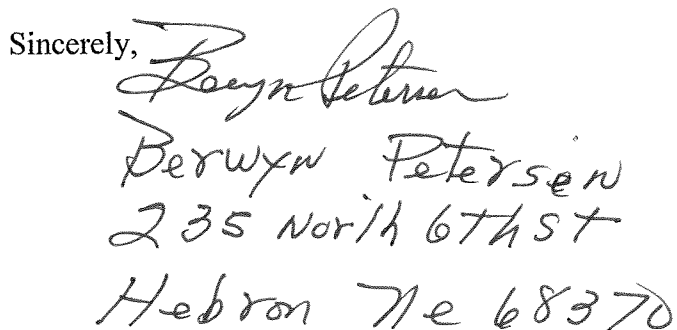 Sincerely,
Berwyn Petersen
Berwyn Petersen
235 North 6th St
Hebron Ne 68370